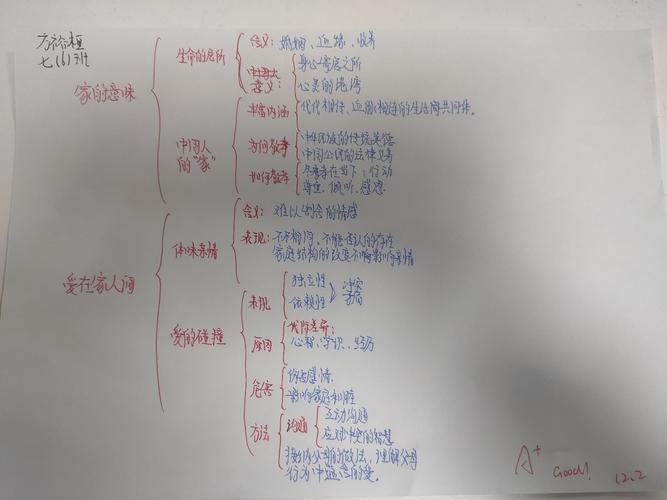 七(6)班
家的意味
生命的居所
含义: 婚姻、血缘、收养
意义:
身心寄居之所
心灵的港湾
中国人的"家"
丰富内涵
代代相传、血脉相连的生活共同体。
为何孝亲
中华民族的传统美德
中国公民的法律义务
如何孝亲
尽孝在当下: 行动
尊重、倾听、感恩
爱在家人间
体味亲情
含义: 难以割舍的情感
表现: 不尽相同、不能否认的存在
家庭结构的改变不响影响亲情
爱的碰撞
表现
独立性
依赖性
冲突
矛盾
原因
代际差异:
心智、学识、经历
危害
伤害感情
影响家庭和睦
方法
沟通
互动沟通
应对冲突的智慧
接纳父母的做法, 理解父母
行为中蕴含的爱。
A+
Good!
12.2